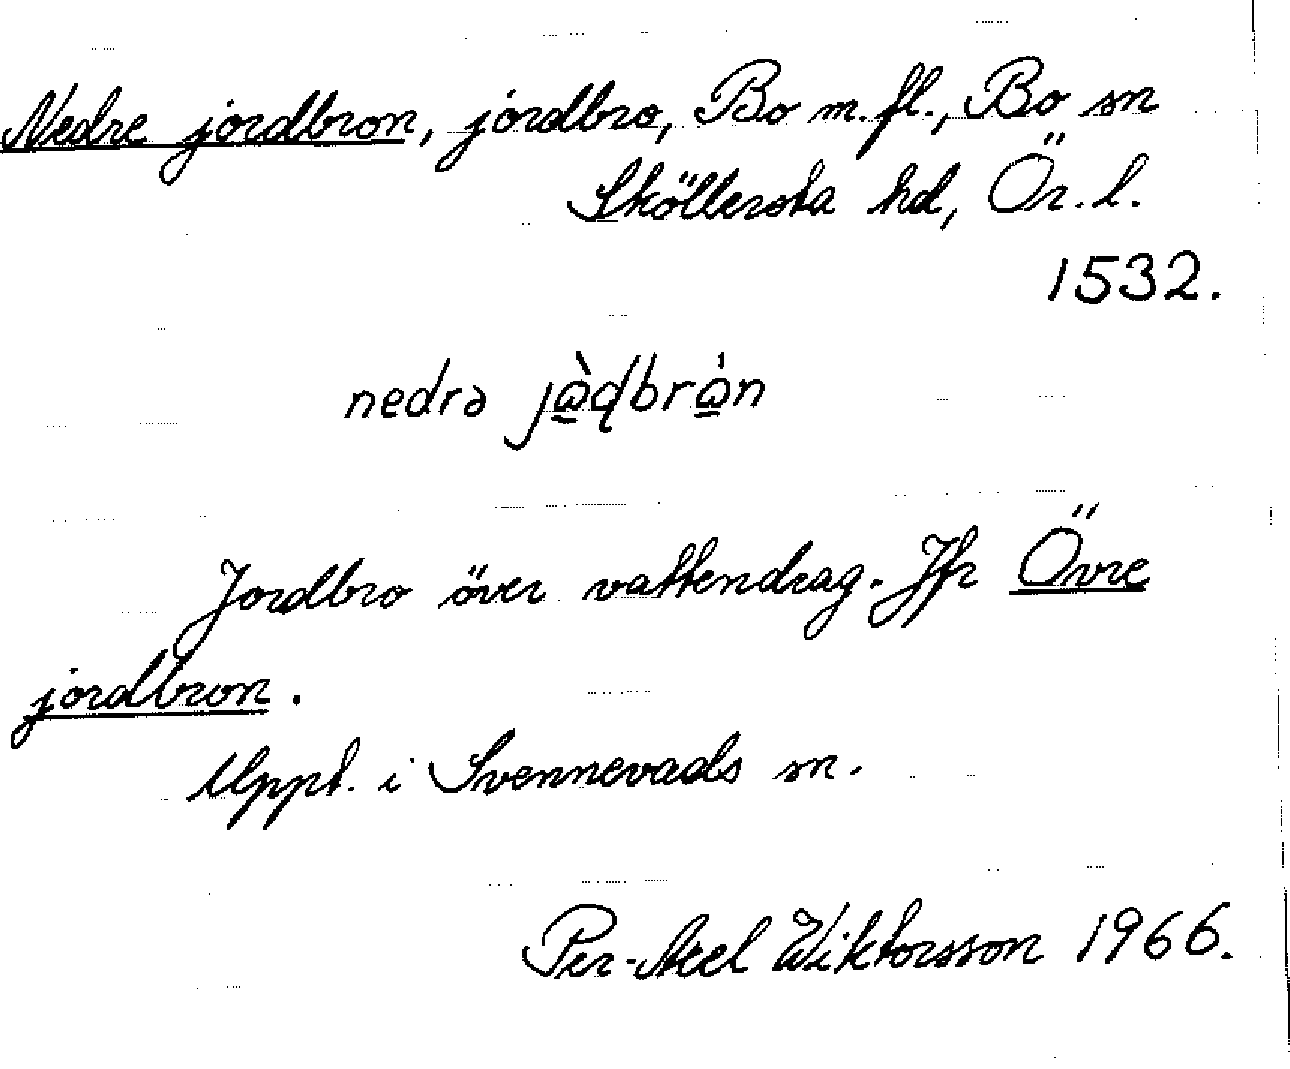 Nedre jordbron, jordbro, Bo m.fl., Bo sn
Sköllersta hd, Ör. l.
1532.
nedrə jὰ̲ɖbrα̲̇n
Jordbro över vattendrag. Jfr Övre
jordbron.
Uppt. i Svennevads sn.
Per-Axel Wiktorsson 1966.